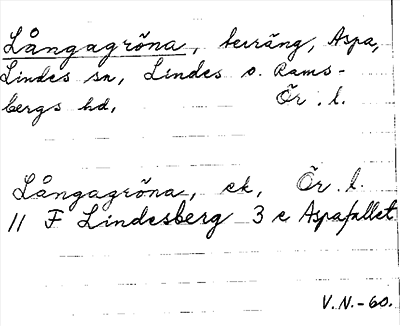 Långagröna, terräng, Aspa,
Lindes sn, Lindes o. Rams-
bergs hd, Ör. l.
Långagröna, ek, Ör. l.
11 F Lindesberg 3 e Aspafallet
V.N.-60.